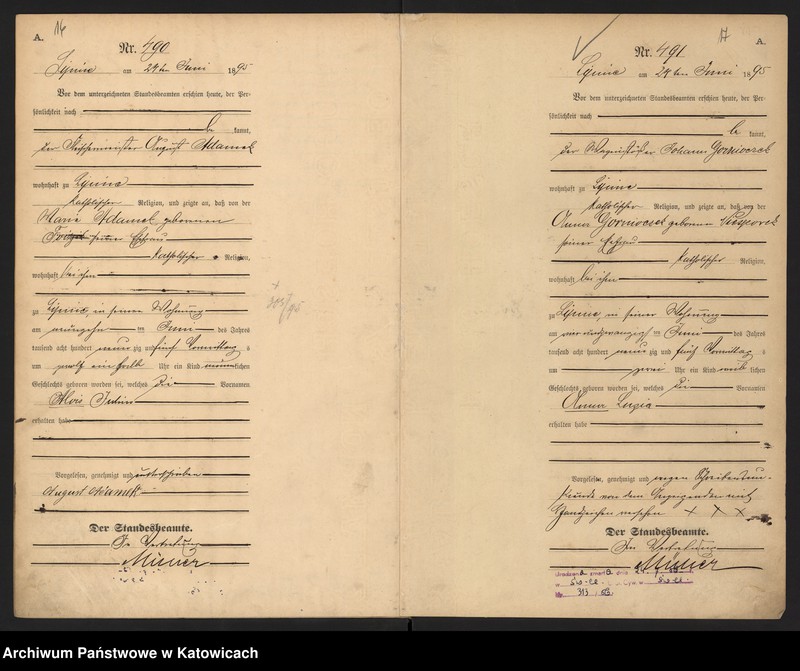 14
A.
Nr. 490
Lipine am 24ten Juni 1895
Vor dem unterzeichneten Standesbeamten erschien heute, der Per-
sönlichkeit nach
be kannt,
der August Adamek
wohnhaft zu Lipine
katholischer Religion, und zeigte an, daß von der
Marie Adamek geborenen
seiner Ehefrau
katholischer Religion,
wohnhaft bei ihm
zu Lipine, in seiner Wohnung
am neunzehn ten Juni des Jahres
tausend acht hundert neun zig und fünf Vormittag s
um zwölf einhalb Uhr ein Kind männlichen
Geschlechts geboren worden sei, welches die Vornamen
Alois
erhalten habe
Vorgelesen, genehmigt und unterschrieben
August Adamek
Der Standesbeamte.
In Vertretung
17
A.
Nr. 491
Lipine am 24ten Juni 1895
Vor dem unterzeichneten Standesbeamten erschien heute, der Per-
sönlichkeit nach
be kannt,
der Johann
wohnhaft zu Lipine
katholischer Religion, und zeigte an, daß von der
Anna geborenen
seiner Ehefrau
katholischer Religion,
wohnhaft bei ihm
zu Lipine, in seiner Wohnung
am vier und zwanzigsten Juni des Jahres
tausend acht hundert neun zig und fünf Vormittag s
um zwei Uhr ein Kind weib lichen
Geschlechts geboren worden sei, welches die Vornamen
Anna Luzia
erhalten habe
Vorgelesen, genehmigt und wegen Schreibensun-
kunde von dem Anzeigenden mit
Handzeichen versehen + X X
Der Standesbeamte.
In Vertretung
Archiwum Państwowe w Katowicach